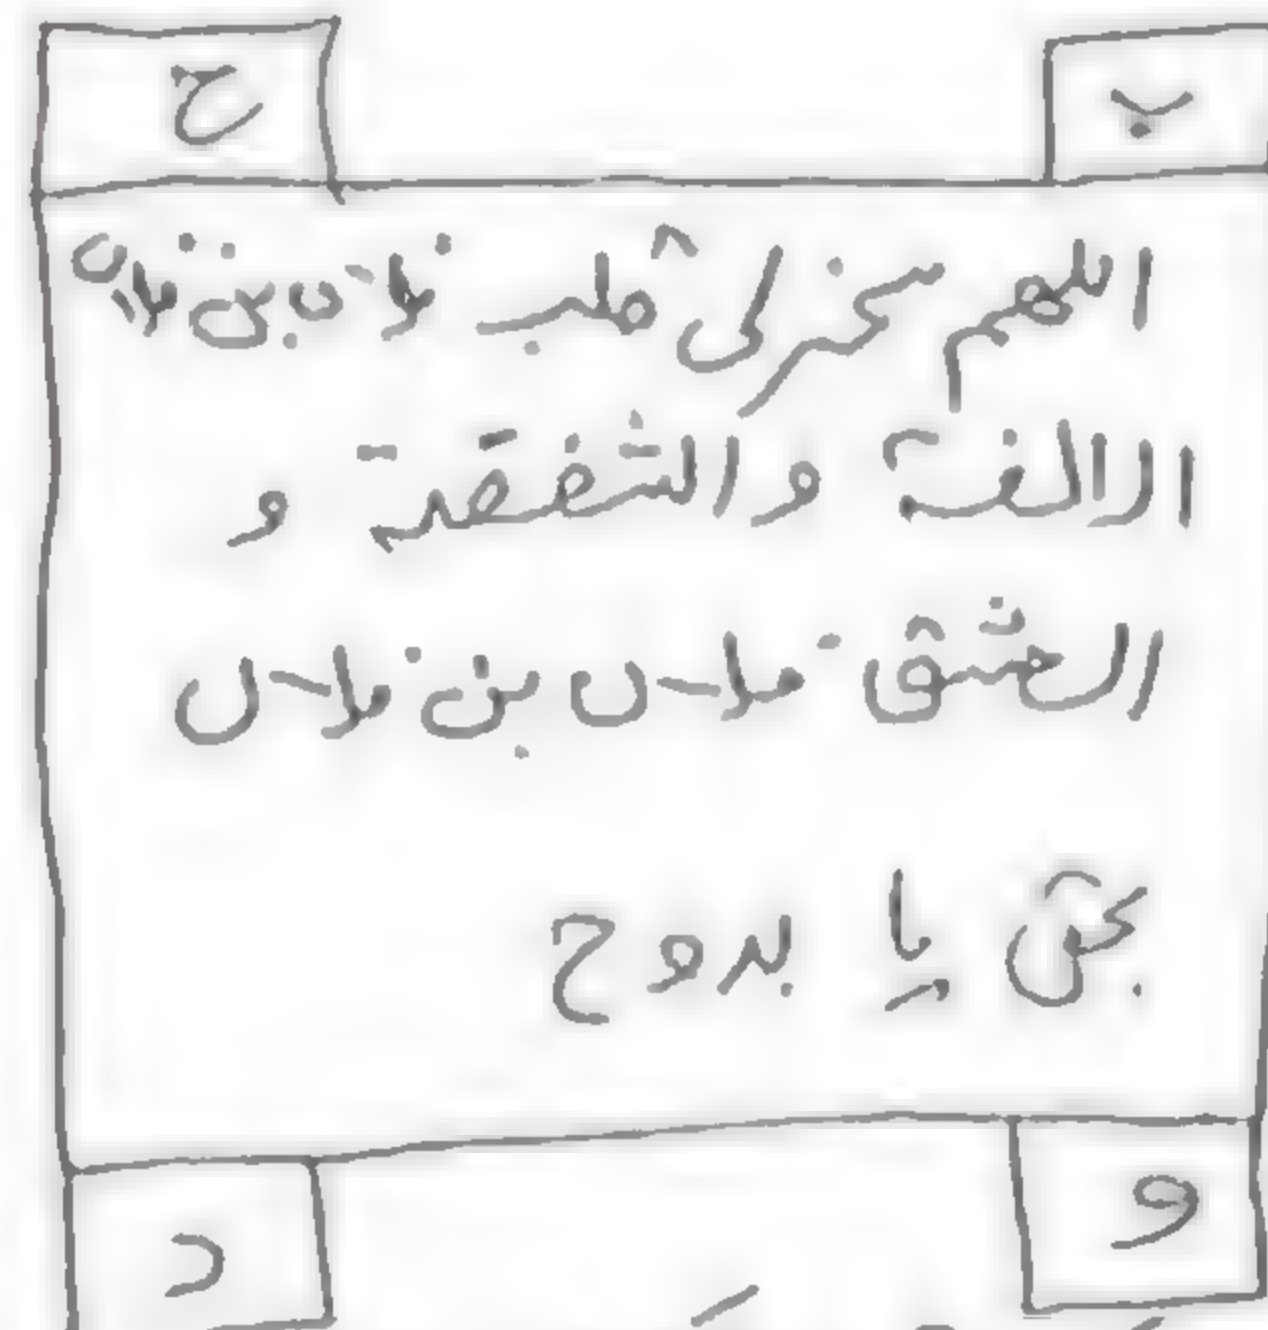 ب ح
اللهم سخر لی قلب فلان بن فلان
الالفة والشفقة و
العشق فلان بن فلان
بحق یا بدوح
و د